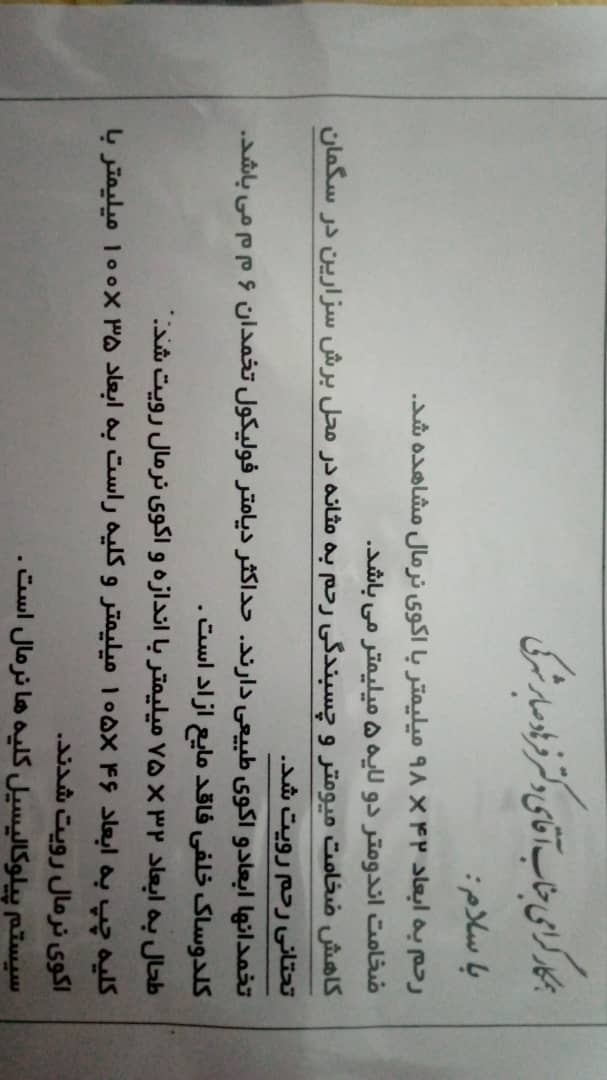 همکار گرامی جناب آقای دکتر فرهاد صابر شهرکی
با سلام :
رحم به ابعاد ۴۲ X ۹۸ میلیمتر با اکوی نرمال مشاهده شد.
ضخامت اندومتر دو لایه ۵ میلیمتر می باشد.
کاهش ضخامت میومتر و چسبندگی رحم به مثانه در محل برش سزارین در سگمان
تحتانی رحم رویت شد.
تخمدانها ابعادو اکوی طبیعی دارند. حداکثر دیامتر فولیکول تخمدان ۶ م م می باشد.
کلدوساک خلفی فاقد مایع ازاد است .
طحال به ابعاد ۳۲ X ۷۵ میلیمتر با اندازه و اکوی نرمال رویت شد.
کلیه چپ به ابعاد ۴۶ X ۱۰۵ میلیمتر و کلیه راست به ابعاد ۳۵ X ۱۰۰ میلیمتر با
اکوی نرمال رویت شدند.
سیستم پیلوکالیسیل کلیه ها نرمال است .